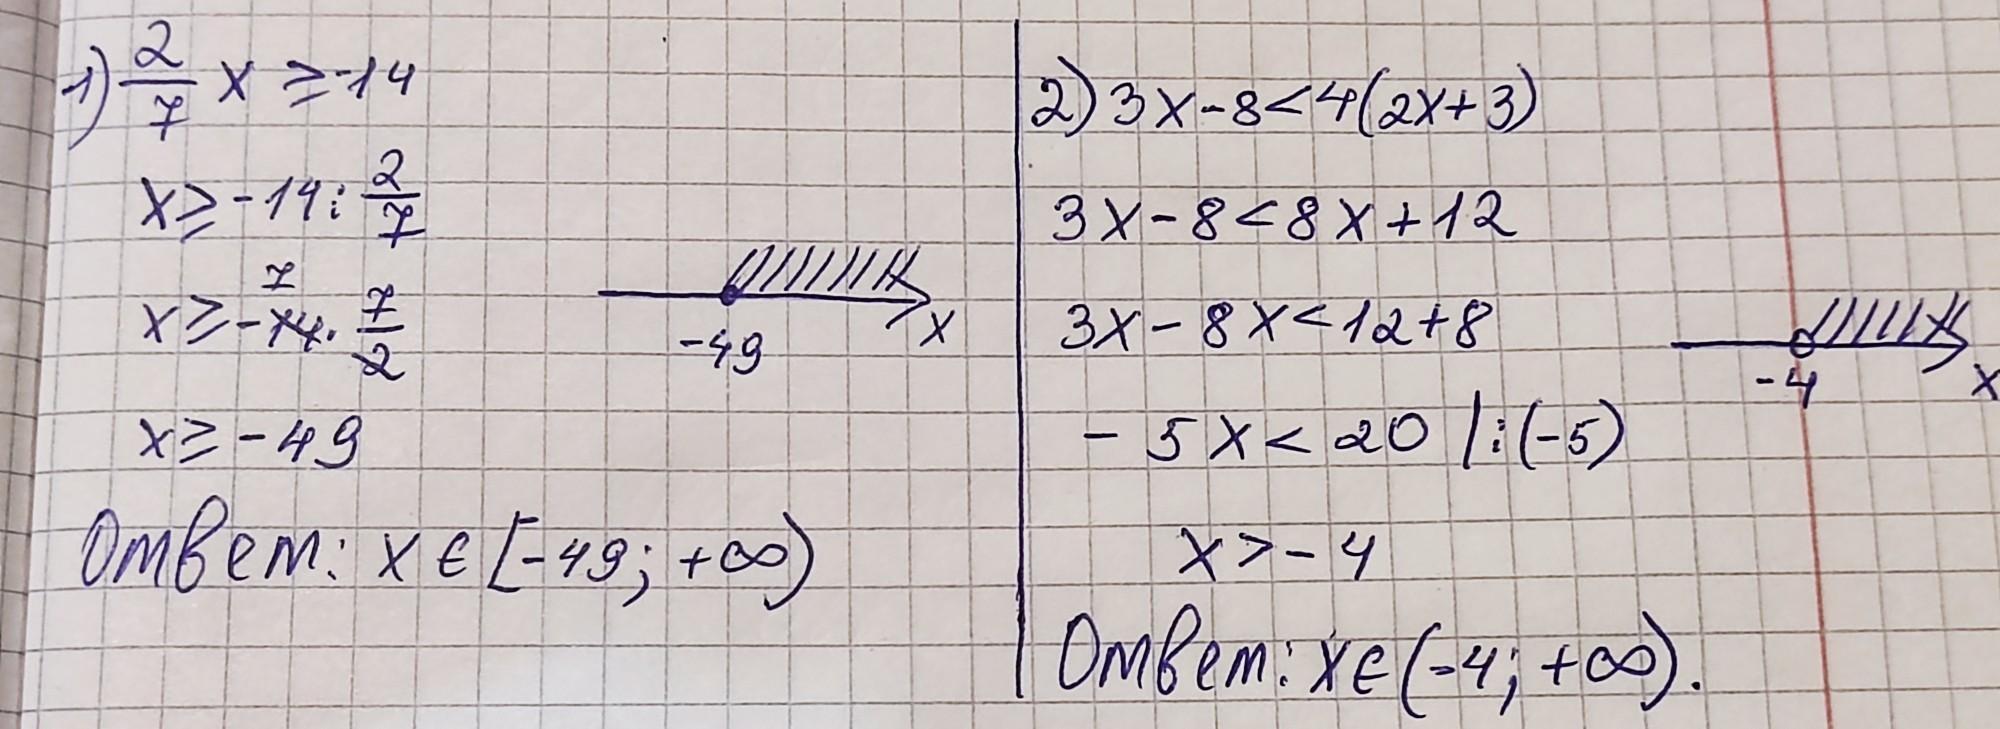 1) 2/7 x ≥ -14
x ≥ -14 : 2/7
7
x ≥ -14 · 7/2
x ≥ -49
-49
x
Ответ: x ∈ [-49; +∞)
2) 3x - 8 < 4(2x + 3)
3x - 8 < 8x + 12
3x - 8x < 12 + 8
- 5x < 20 | : (-5)
x > - 4
-4
x
Ответ: x ∈ (-4; +∞).